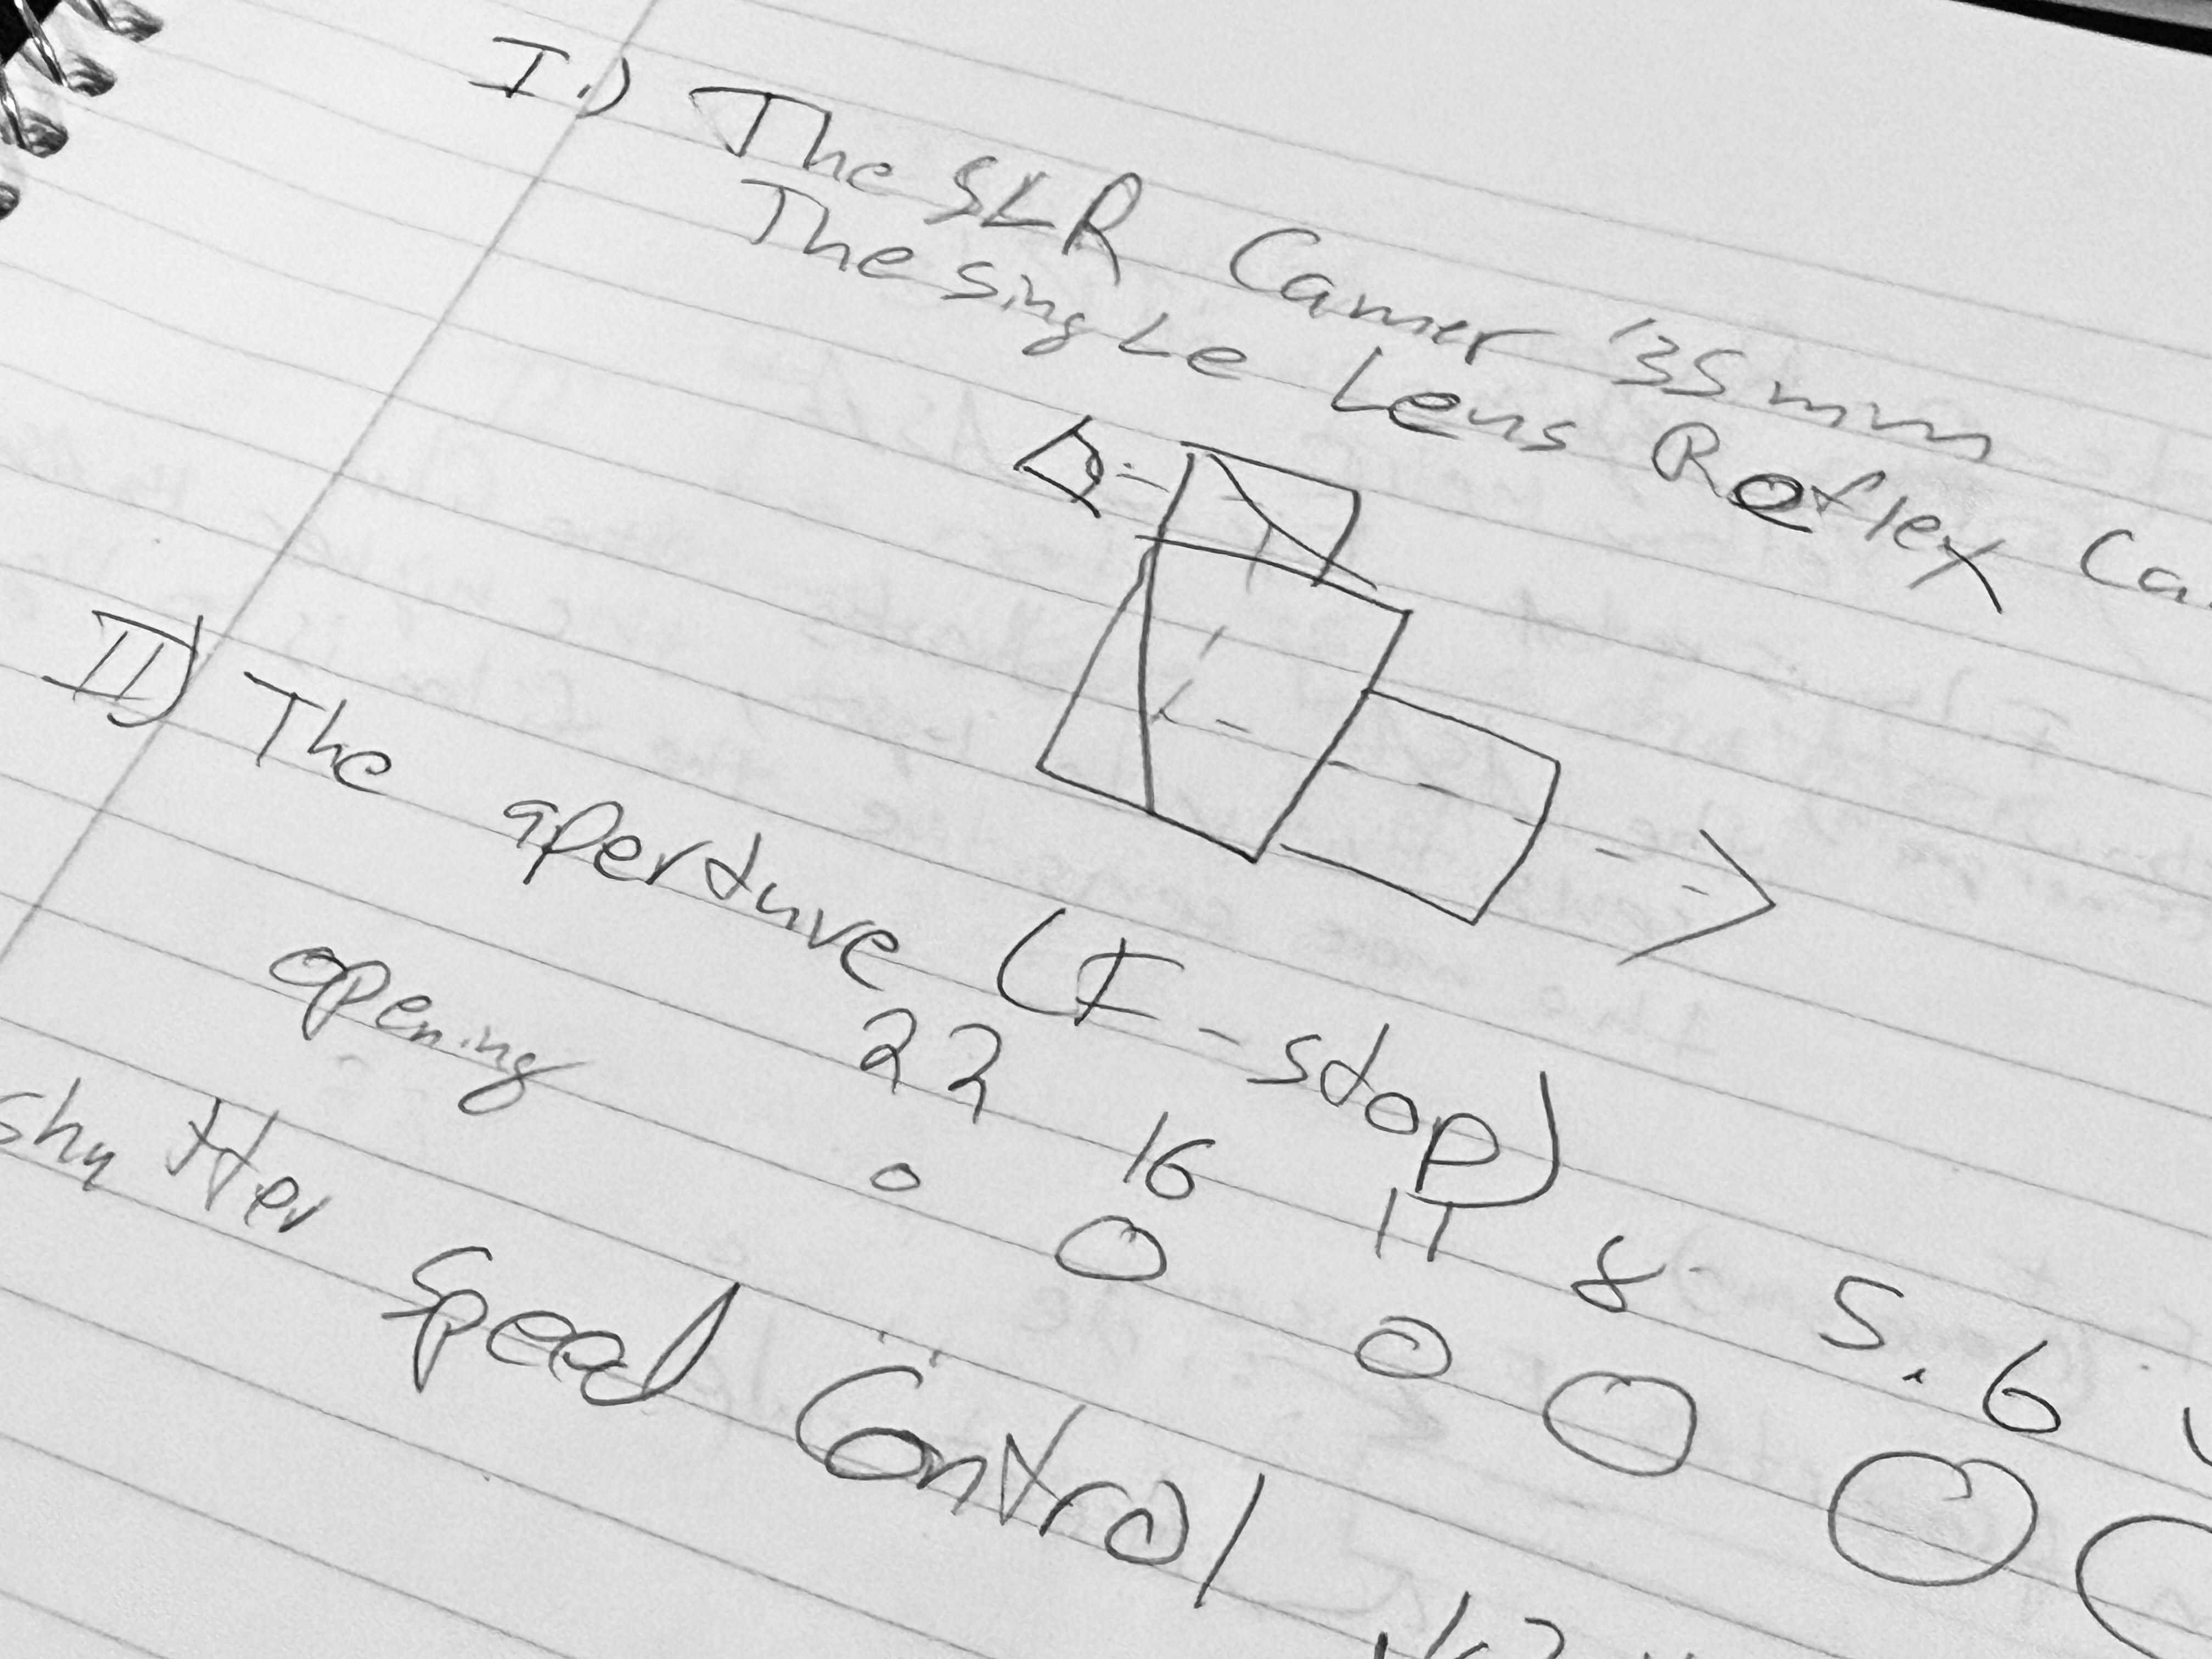 I.) The SLR Camer '35mm
The single Lens Reflex Ca
II) The aperture (F-stop)
22 16 11 8 5.6
opening
Shutter Speed Control